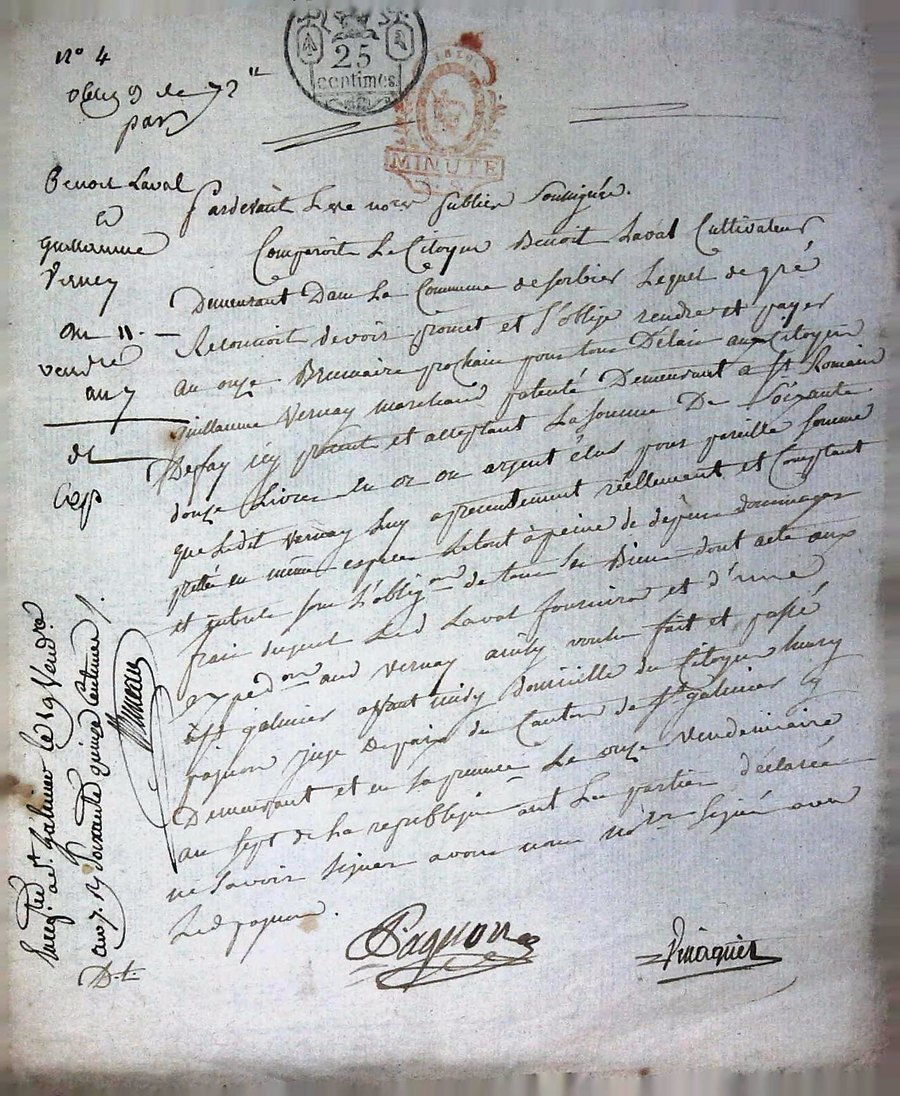 N° 4
oblig on de 72 ll
par
Benoit Laval
a
guillaume
Verney
du 11.
vendre
an 7
et
Exp
25
centimes
MINUTE
Pardevant Le notre publicq Soussignée.
Comparoit Le Citoyen Benoit Laval Cultivateur
Demeurant Dans La Commune de Sorbier Lequel de gré
Reconnoit devoir promet et S'oblige rendre et payer
au onze Brumaire prochain pour tous Délais au Citoyen
guillaume Vernay Marchand patenté Demeurant a St Romain
Desfay icy présent et acceptant La Somme De Soixante
douze Livres en or ou argent pour pareille Somme
que Ledit Vernay Luy a présentement réellement et Comptant
prêtée en même espece Le tout à peine de dépens dommages
et intérêts sous L'oblig on de tous Ses Biens dont acte aux
frais duquel Led Laval fournira et d'une
exped on aud Vernay ainsy voulu fait et passé
à St galmier avant midy Domicille du Citoyen
pagnon juge de paix du Canton de St galmier y
Demeurant et en Sa présence Le onze Vendemiaire
an Sept de La republique ont Les parties déclarée
ne Savoir Signer avons nous no re Signé avec
Led pagnon.
Pagnon
Enreg tré à St Galmier le 19 Vendre
an 7. Soixante quinze Centimes
D. t.